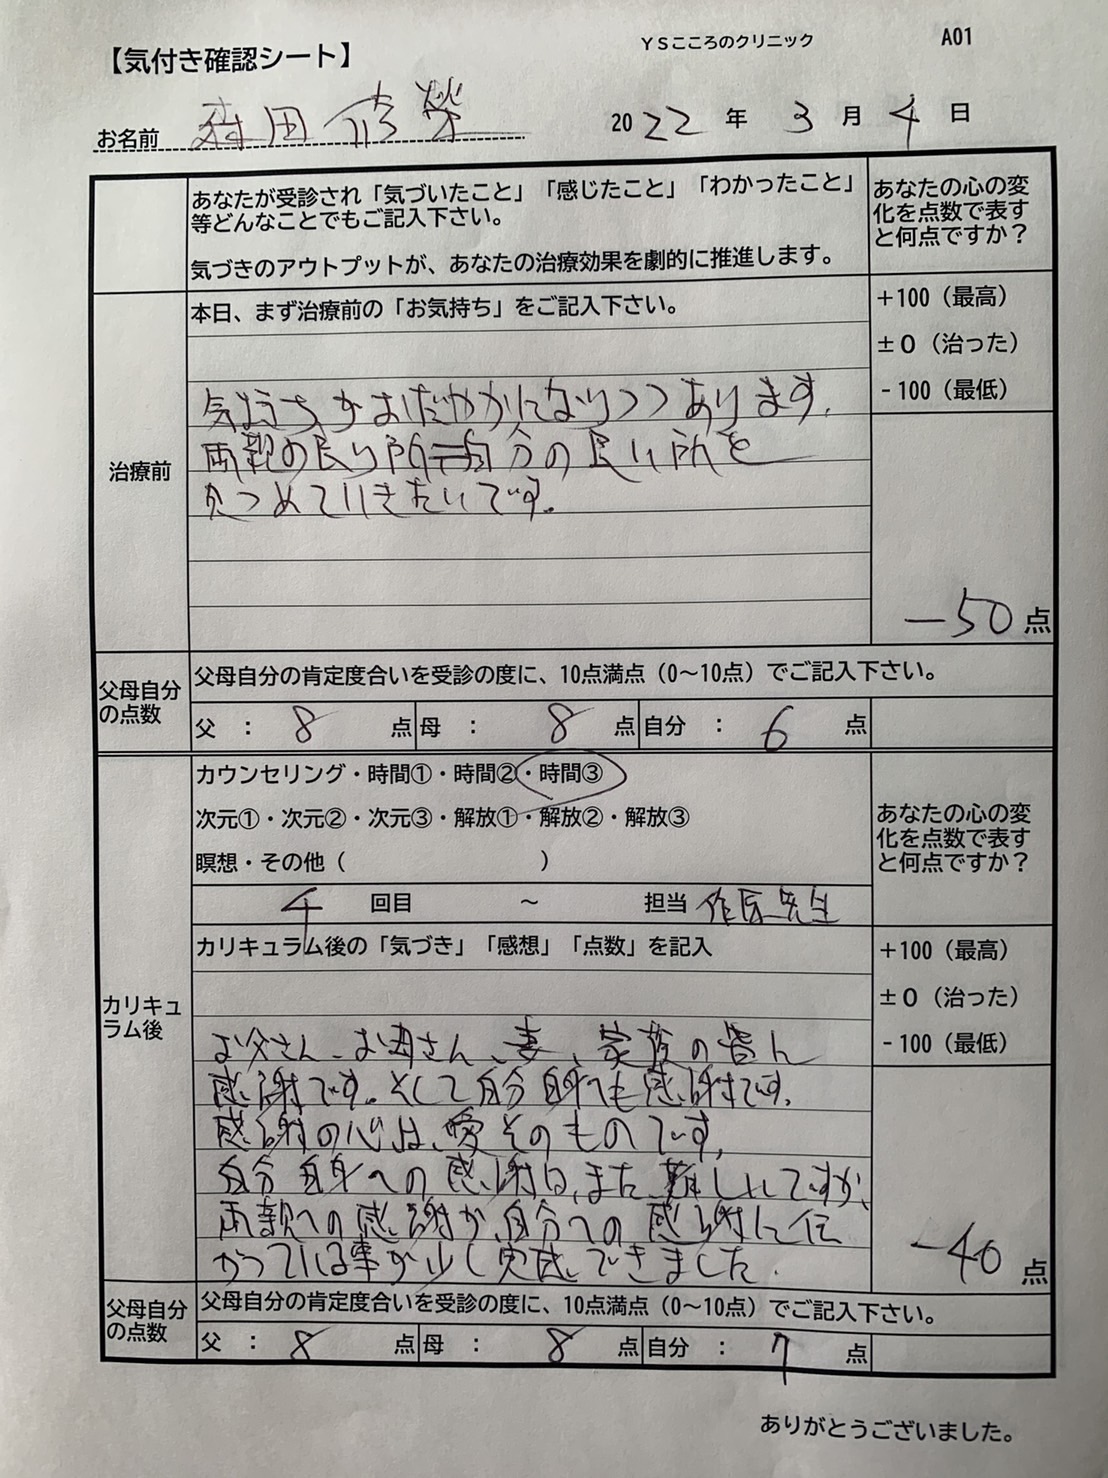 【気付き確認シート】
YSこころのクリニック
A01
お名前 森田
2022年 3月 4日
あなたが受診され「気づいたこと」「感じたこと」「わかったこと」
等どんなことでもご記入下さい。
気づきのアウトプットが、あなたの治療効果を劇的に推進します。
あなたの心の変
化を点数で表す
と何点ですか？
治療前
本日、まず治療前の「お気持ち」をご記入下さい。
気持ちがおだやかになりつつあります。
両親の良い所＝自分の良い所を
みつめていきたいです。
+100（最高）
±0（治った）
-100（最低）
-50点
父母自分
の点数
父母自分の肯定度合いを受診の度に、10点満点（0〜10点）でご記入下さい。
父 ： 8 点 母 ： 8 点 自分 ： 6 点
カリキュ
ラム後
カウンセリング・時間①・時間②・時間③
次元①・次元②・次元③・解放①・解放②・解放③
瞑想・その他（ ）
4 回目 〜 担当 先生
カリキュラム後の「気づき」「感想」「点数」を記入
お父さん、お母さん、妻、家族の皆ん
感謝です。そして自分自身へも感謝です。
感謝の心は、愛そのものです。
自分自身への感謝は、まだ難しいですが、
両親への感謝が、自分への感謝に伝
がっている事が少し実感できました。
あなたの心の変
化を点数で表す
と何点ですか？
+100（最高）
±0（治った）
-100（最低）
-40点
父母自分
の点数
父母自分の肯定度合いを受診の度に、10点満点（0〜10点）でご記入下さい。
父 ： 8 点 母 ： 8 点 自分 ： 7 点
ありがとうございました。